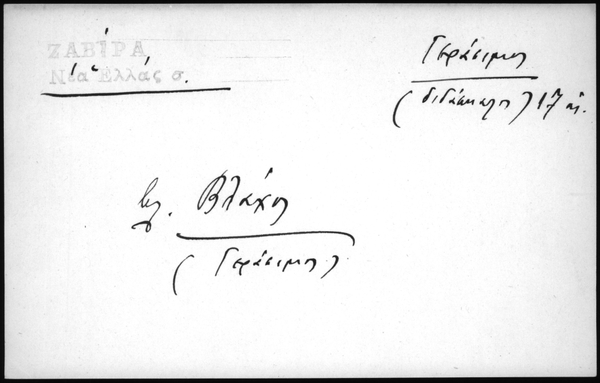 ΖΑΒΙΡΑ
Νέα Ελλάς σ.
Γεράσιμος
(διδάσκαλος) 17 αι.
βλ. Βλάχος
(Γεράσιμος)